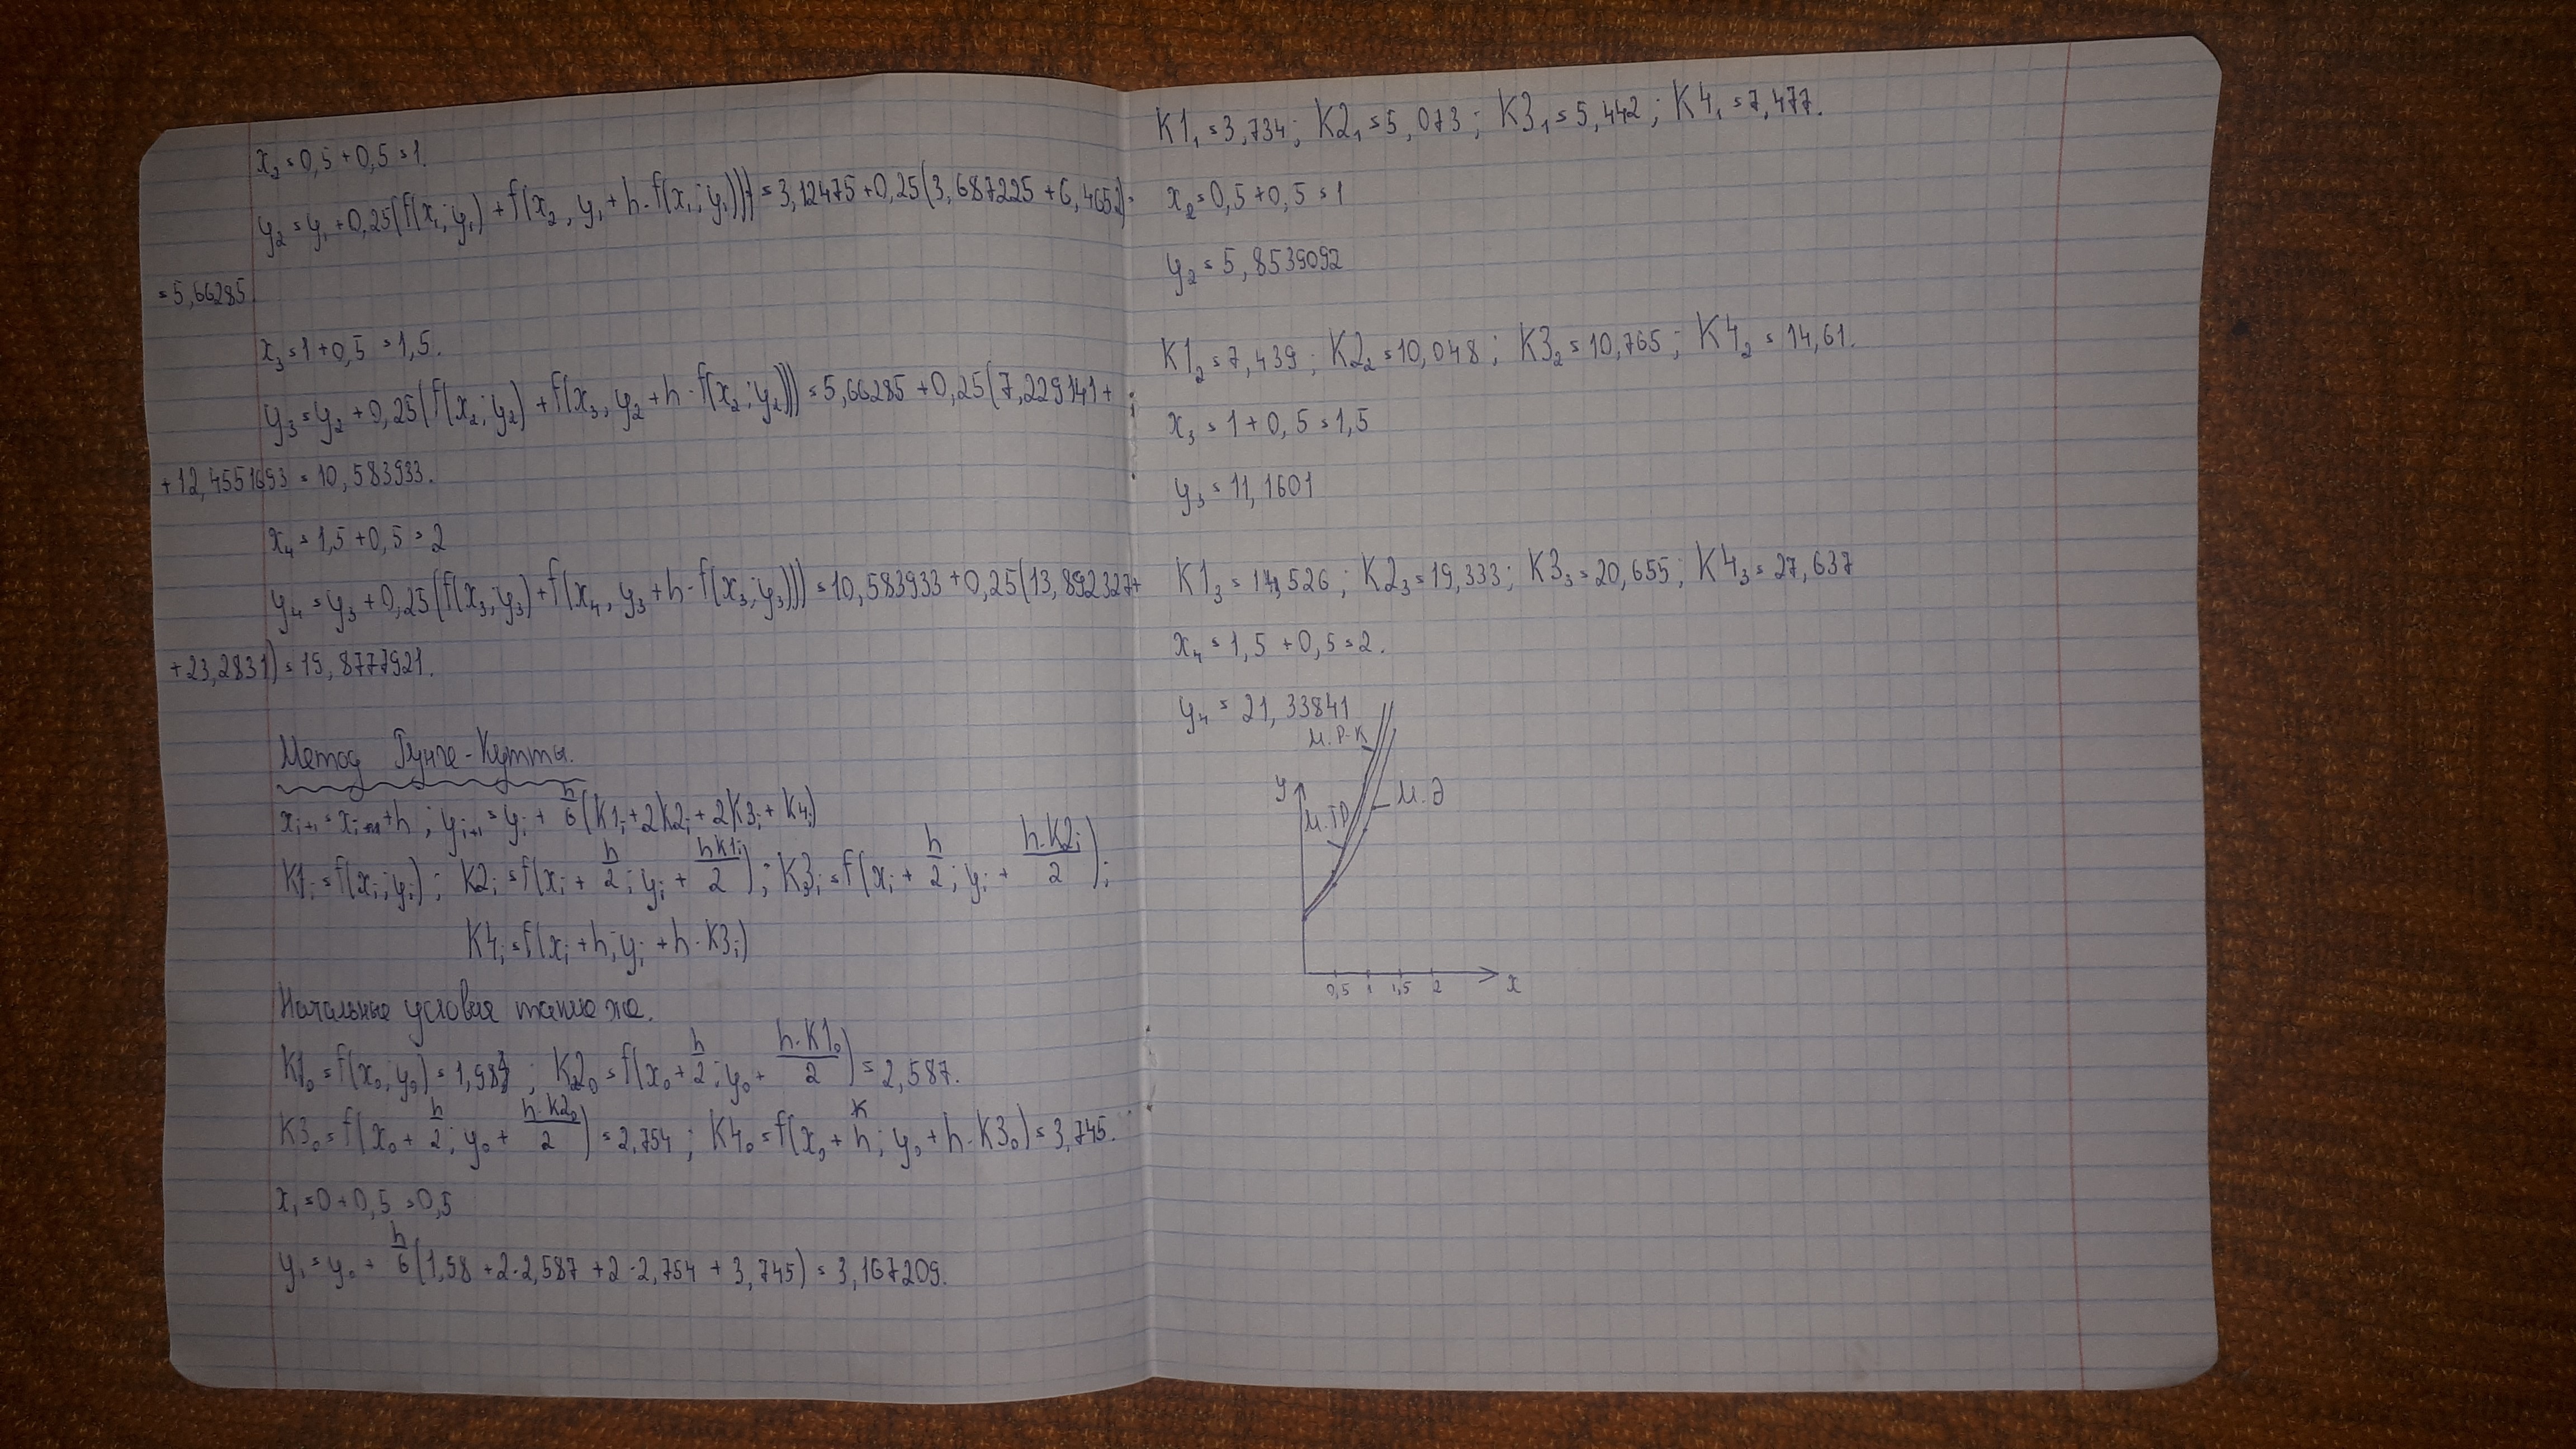 x₂ = 0,5 + 0,5 = 1.
y₂ = y₁ + 0,25(f(x₁; y₁) + f(x₂, y₁ + h · f(x₁; y₁))) = 3,12475 + 0,25(3,687225 + 6,4652) =
= 5,66285
x₃ = 1 + 0,5 = 1,5.
y₃ = y₂ + 0,25(f(x₂; y₂) + f(x₃, y₂ + h · f(x₂; y₂))) = 5,66285 + 0,25(7,229141 +
+ 12,4551693 = 10,583933.
x₄ = 1,5 + 0,5 = 2
y₄ = y₃ + 0,25(f(x₃, y₃) + f(x₄, y₃ + h · f(x₃, y₃))) = 10,583933 + 0,25(13,892327 +
+ 23,2831) = 19,8777921.
Метод Рунге-Кутта.
xᵢ₊₁ = xᵢ + h ; yᵢ₊₁ = yᵢ + h/6 (K1ᵢ + 2K2ᵢ + 2K3ᵢ + K4ᵢ)
K1ᵢ = f(xᵢ; yᵢ) ; K2ᵢ = f(xᵢ + h/2 ; yᵢ + hK1ᵢ/2) ; K3ᵢ = f(xᵢ + h/2 ; yᵢ + h·K2ᵢ/2) ;
K4ᵢ = f(xᵢ + h; yᵢ + h · K3ᵢ)
Начальные условия такие же.
K1₀ = f(x₀, y₀) = 1,58 ; K2₀ = f(x₀ + h/2 ; y₀ + h·K1₀/2) = 2,587.
K3₀ = f(x₀ + h/2 ; y₀ + h·K2₀/2) = 2,754 ; K4₀ = f(x₀ + h ; y₀ + h · K3₀) = 3,745.
x₁ = 0 + 0,5 = 0,5
y₁ = y₀ + h/6 (1,58 + 2·2,587 + 2·2,754 + 3,745) = 3,167209.
K1₁ = 3,734 ; K2₁ = 5,073 ; K3₁ = 5,442 ; K4₁ = 7,477.
x₂ = 0,5 + 0,5 = 1
y₂ = 5,8539092
K1₂ = 7,439 ; K2₂ = 10,048 ; K3₂ = 10,765 ; K4₂ = 14,61.
x₃ = 1 + 0,5 = 1,5
y₃ = 11,1601
K1₃ = 14,526 ; K2₃ = 19,333 ; K3₃ = 20,655 ; K4₃ = 27,637
x₄ = 1,5 + 0,5 = 2.
y₄ = 21,33841
М.Р-К
y
М.Э
М.ТР
0,5 1 1,5 2 x